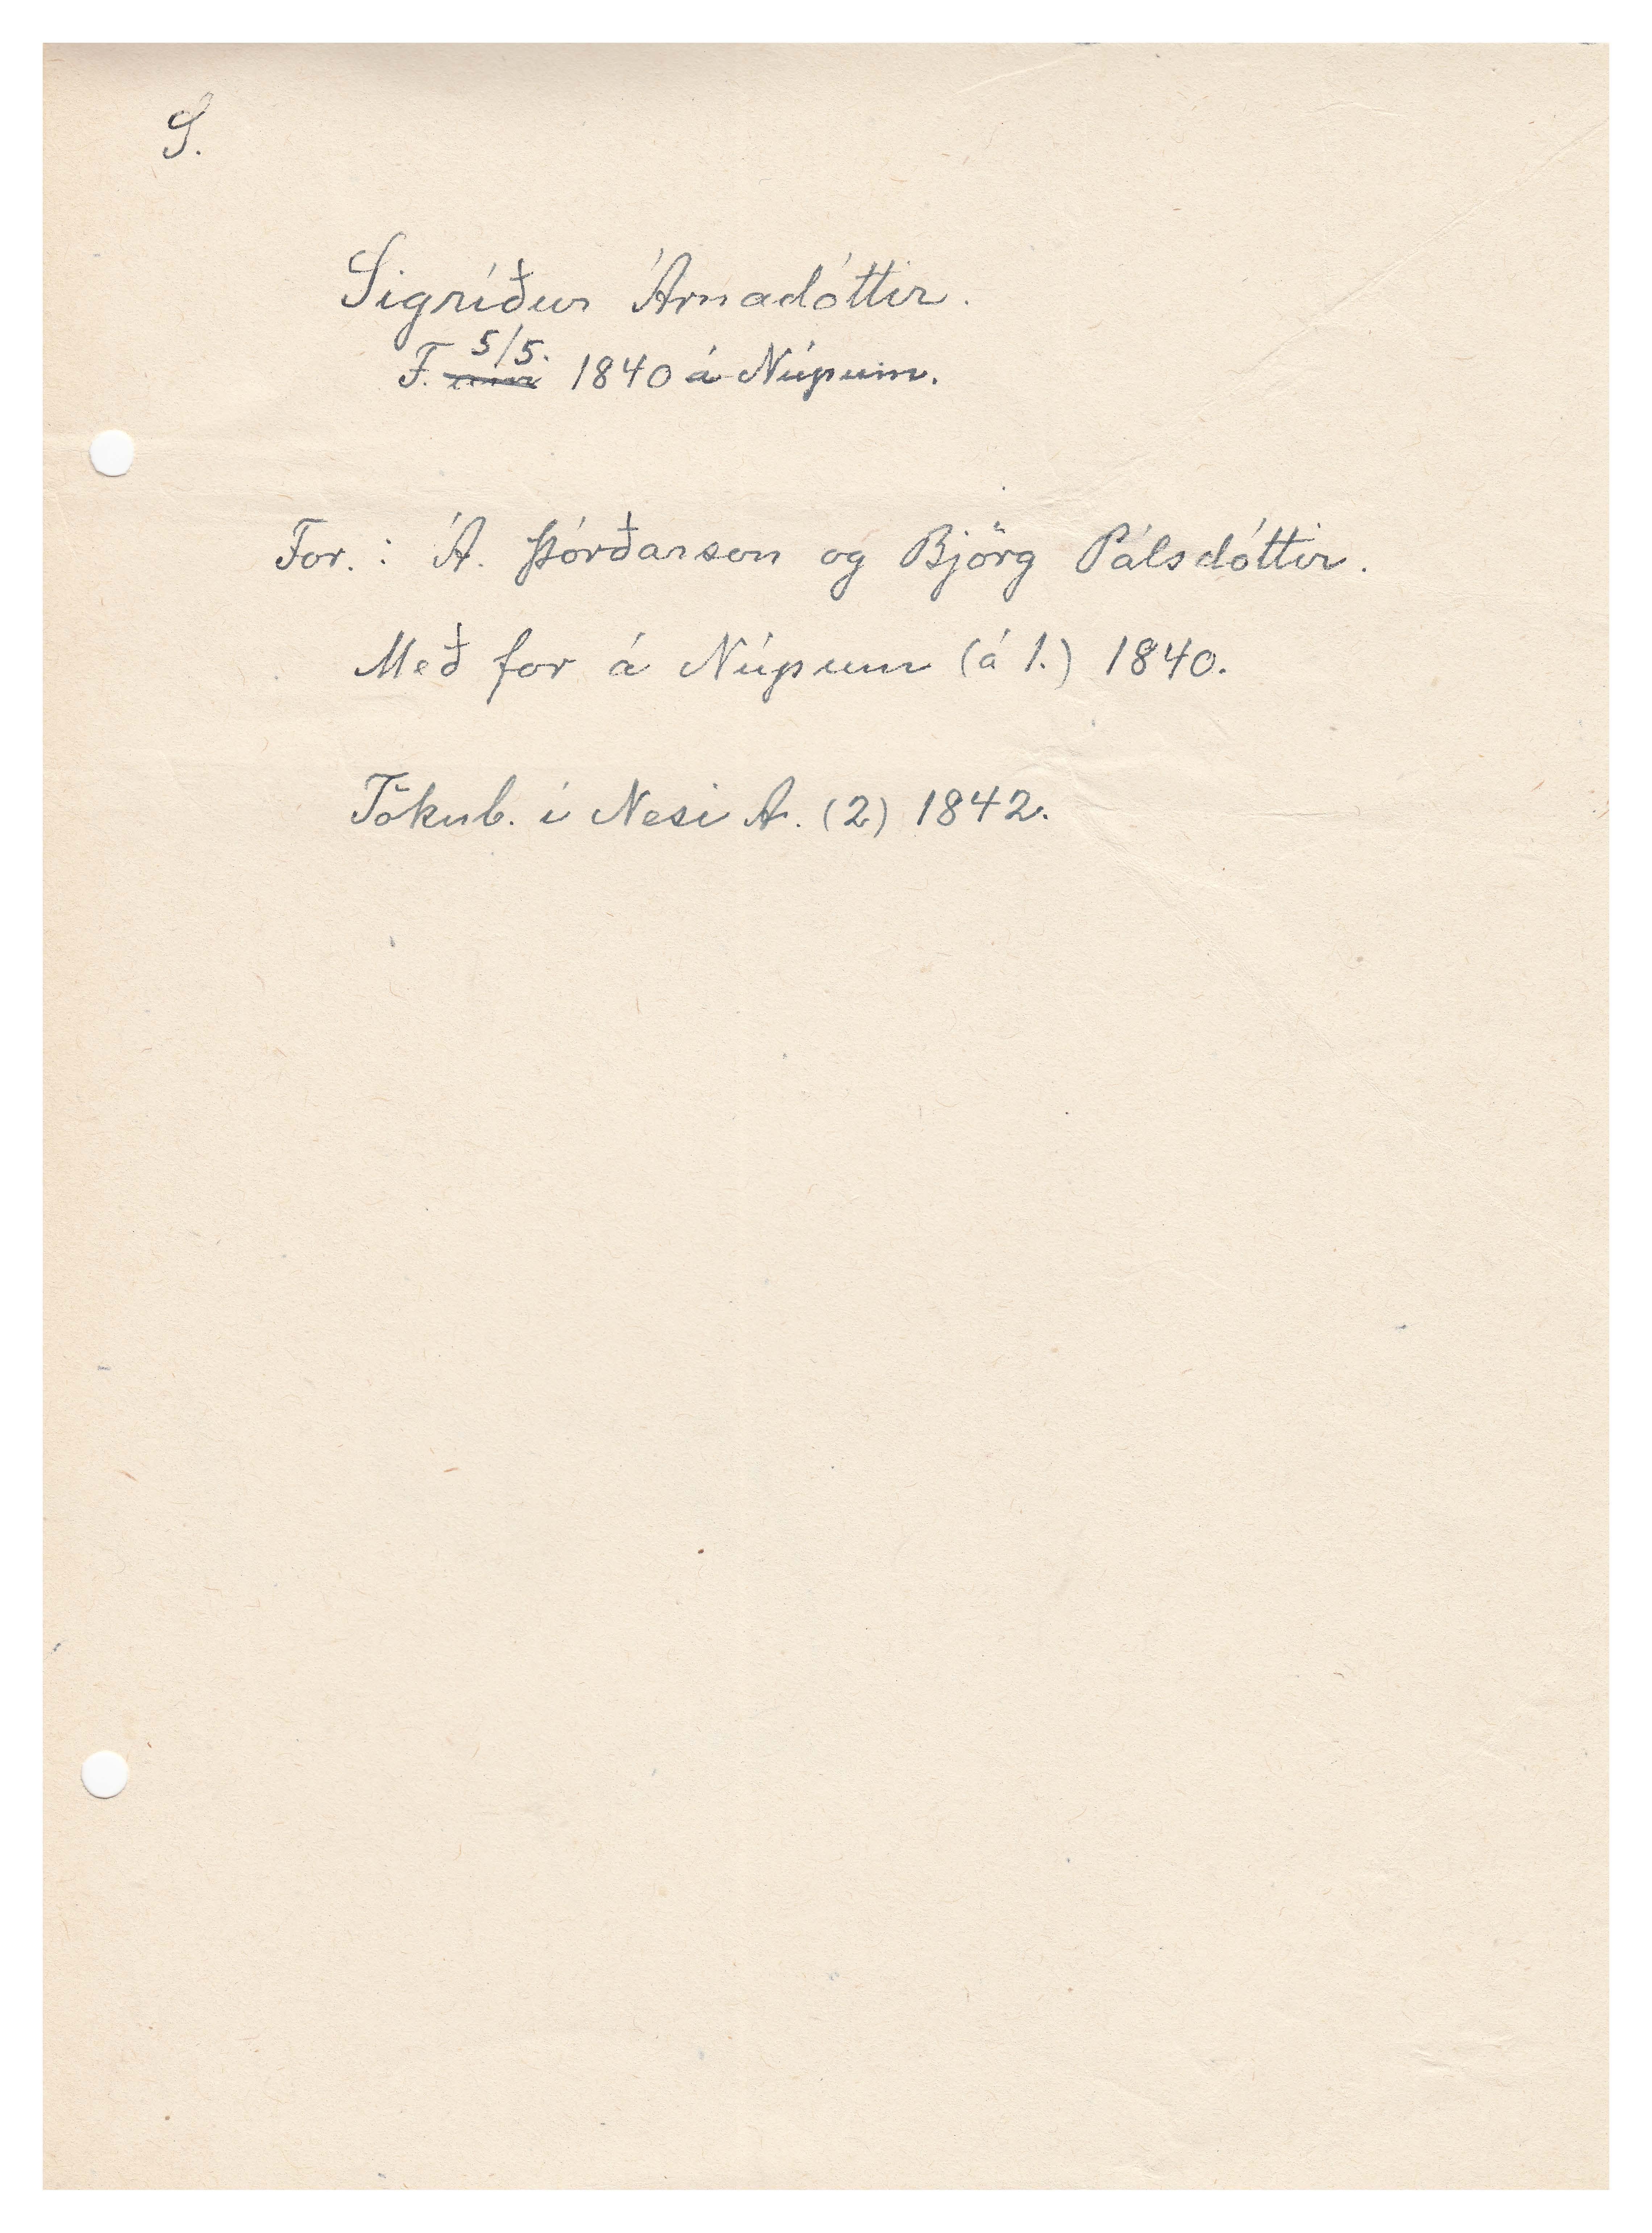 S.
Sigríður Árnadóttir.
F. 5/5. 1840 á Núpum.
For.: Á. Þórðarson og Björg Pálsdóttir.
Með for á Núpum (á 1.) 1840.
Tökub. í Nesi A. (2) 1842.